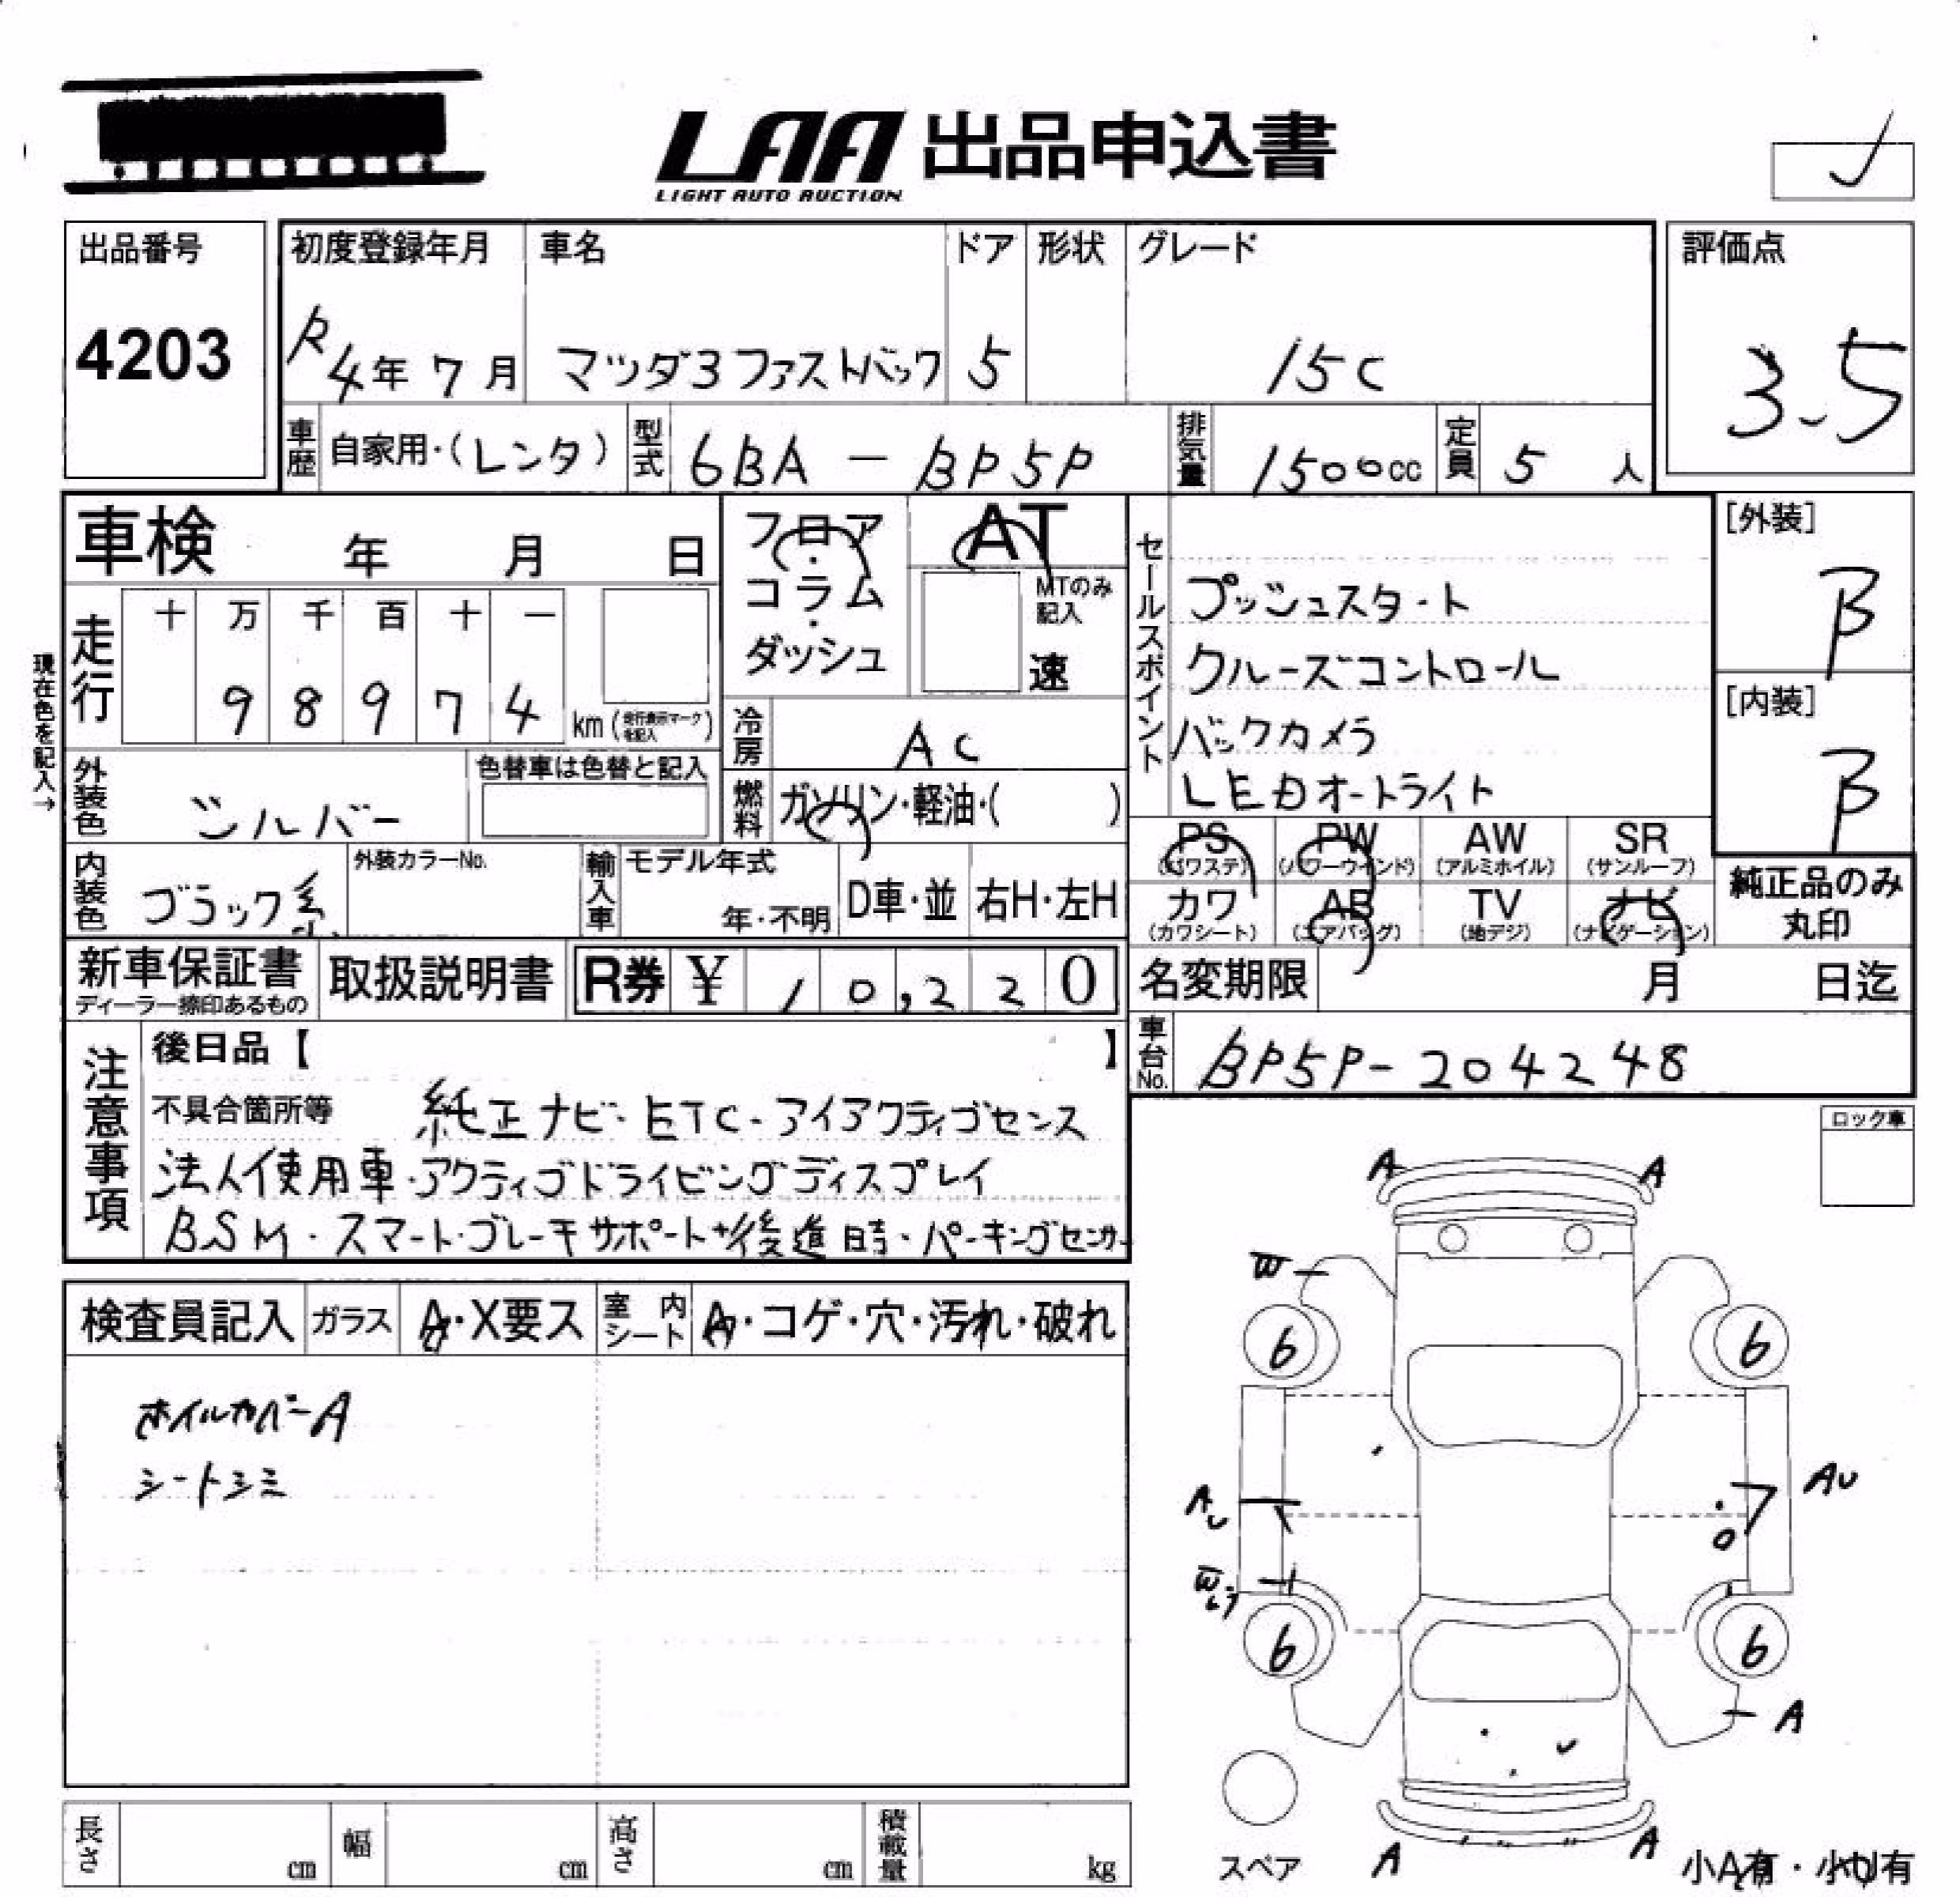 LAA 出品申込書
LIGHT AUTO AUCTION
出品番号
4203
初度登録年月
R4年 7月
車名
マツダ3 ファストバック
ドア
5
形状
グレード
15C
評価点
3.5
車歴 自家用・(レンタ)
型式 6BA - BP5P
排気量 1500cc
定員 5 人
車検 年 月 日
走行
十 万 千 百 十 一
9 8 9 7 4
km (走行表示マークを記入)
現在色を記入→
フロア・コラム・ダッシュ
AT
MTのみ記入
速
冷房 AC
燃料 ガソリン・軽油・( )
外装色 シルバー
色替車は色替と記入
内装色 ブラック系
外装カラーNo.
輸入車
モデル年式
年・不明
D車・並
右H・左H
セールスポイント
プッシュスタート
クルーズコントロール
バックカメラ
LEDオートライト
[外装]
B
[内装]
B
PS (パワステ)
PW (パワーウインド)
AW (アルミホイル)
SR (サンルーフ)
カワ (カワシート)
AB (エアバッグ)
TV (地デジ)
ナビ (ナビゲーション)
純正品のみ
丸印
新車保証書
ディーラー捺印あるもの
取扱説明書
R券 ¥ 10,220
名変期限 月 日迄
車台No. BP5P-204248
注意事項
後日品【 】
不具合箇所等 純正ナビ・ETC・アイアクティブセンス
法人使用車・アクティブドライビングディスプレイ
BSM・スマート・ブレーキサポート+後進時・パーキングセンサー
ロック車
検査員記入
ガラス
A・X要ス
室内シート
A・コゲ・穴・汚れ・破れ
ホイルカバーA
シートシミ
A A
W
6 6
AU AU
W
6 6
A
A A
スペア
小A有・小U有
長さ cm
幅 cm
高さ cm
積載量 kg